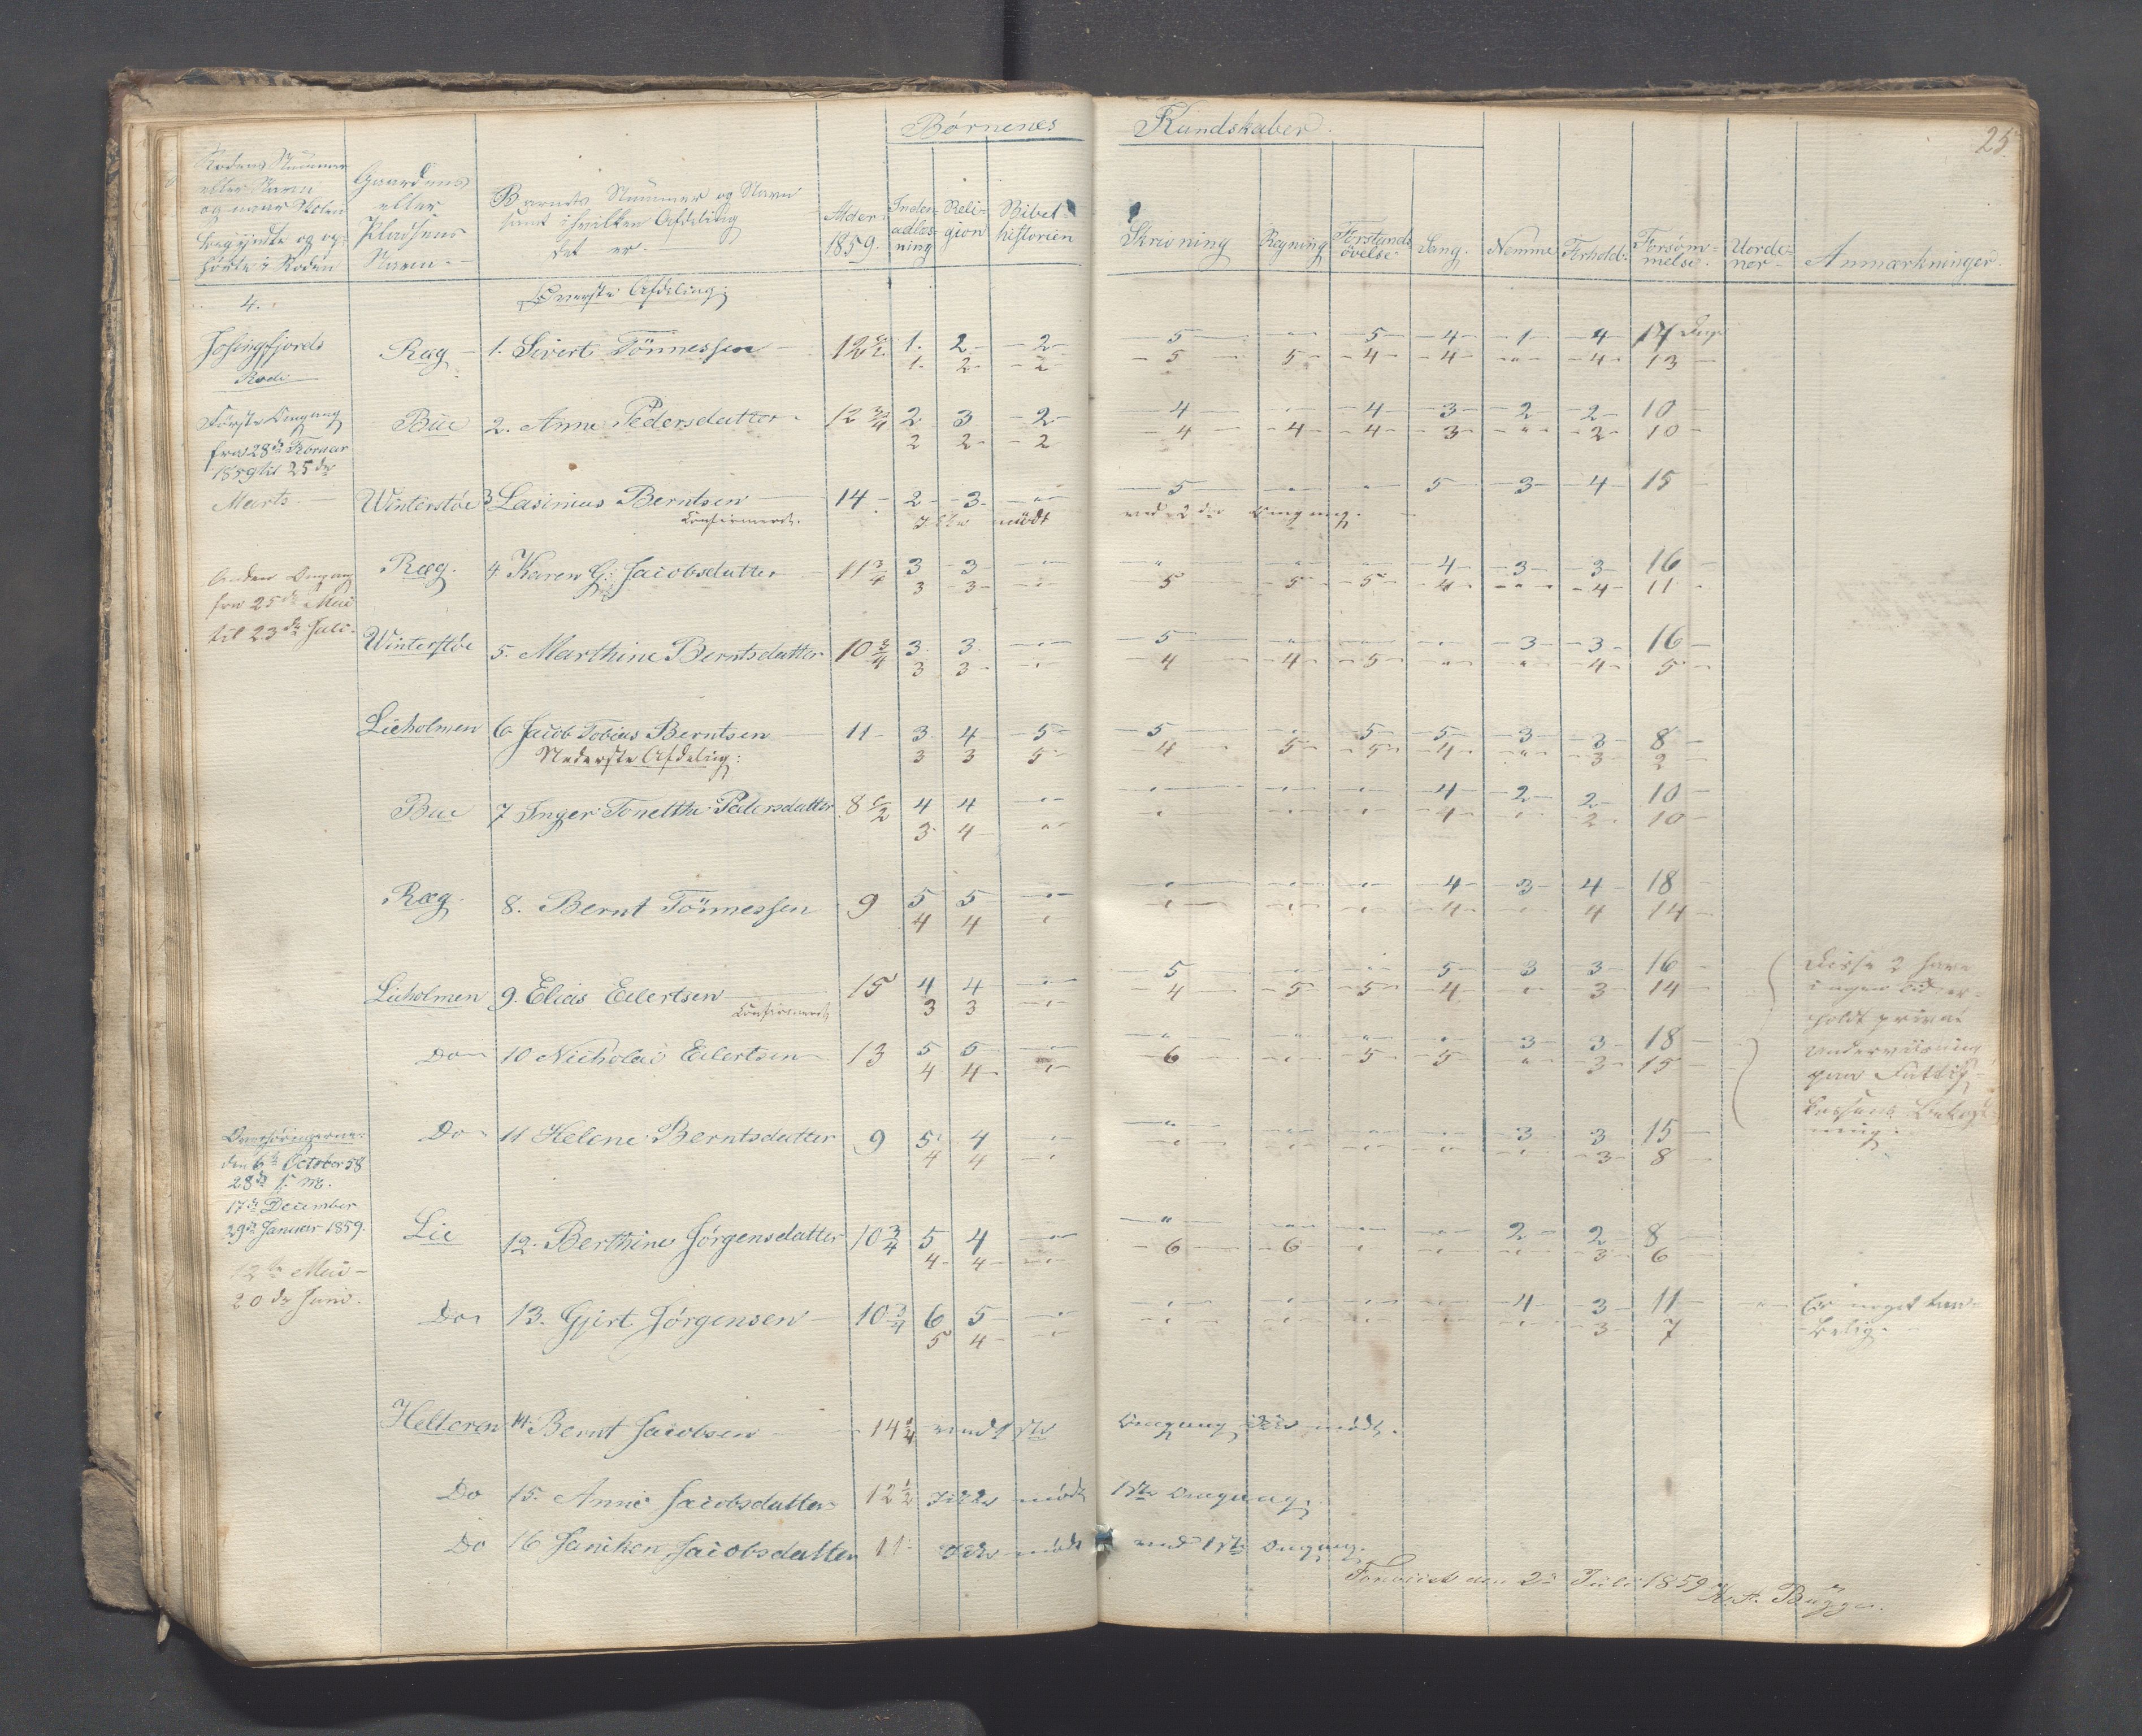 25.
Børnenes Kundskaber.
Rodens Nummer eller Navn og naar Skolen begyndte og ophørte i Roden
Gaardens eller Pladsens Navn
Barnets Nummer og Navn samt i hvilken Afdeling det er.
Alder 1859.
Inden- adlæs- ning
Reli- gion
Bibel- historien
Skrivning
Regning
Forstands øvelse
Sang.
Nemme
Forhold.
Forsøm- melse.
Uorde- ner
Anmærkninger.
4.
Øverste Afdeling:
Josingfjords Rode
Ræg 1. Sivert Tönnessen 12 1/2 1. 2 2 5 " 5 4 1 4 14 Dage
1. 2 2 5 5 4 4 " 4 13
Første Omgang
fra 28de Februar
1859 til 25de
Marts.
Bue 2. Anne Pedersdatter 12 3/4 2 3 2 4 " 4 3 2 2 10
2 2 2 4 4 4 3 " 2 10
Winterstøe 3 Lasinius Berntsen 14 2 3 " 5 " " 5 3 4 15
Confirmeret. Ikke mödt ved 2den Omgang.
Anden Omgang
fra 25de Mai
til 23de Juli.
Ræg. 4. Karen G. Jacobsdatter 11 3/4 3 3 " " " " 4 3 3 16
3 3 " 5 5 5 4 " 4 11
Winterstøe 5. Marthine Berntsdatter 10 3/4 3 3 " 5 " " " 3 3 16
3 3 " 4 4 5 " " 4 5
Lieholmen 6 Jacob Tobias Berntsen 11 3 4 5 5 " 5 5 3 3 8
3 3 5 4 5 5 4 " 3 2
Nederste Afdeling:
Bue 7 Inger Tonette Pedersdatter 8 1/2 4 4 " " " " 4 2 2 10
3 4 " " " " 4 " 2 10
Ræg. 8. Bernt Tönnessen 9 5 5 " " " " 4 3 4 18
4 4 " " " " 4 " 4 14
Lieholmen 9. Elias Eilertsen 15 4 4 " 5 " " 5 3 3 16
Confirmeret 3 3 " 4 5 5 4 " 3 14
Disse 2 have
ingen Tid er-
holdt privat
Underviisning
paa Fattig-
kassens Bekost-
ning.
Do 10 Nicholai Eilertsen 13 5 5 " " " " " 3 3 18
4 4 " 6 " 5 5 " 3 15
Do 11 Helene Berntsdatter 9 5 4 " " " " " 3 3 15
4 4 " " " " " " 3 8
Overhøringerne:
den 6te October 58
28de s. M.
17de December
29de Januar 1859.
12te Mai
20de Juni.
Lie 12. Berthine Jørgensdatter 10 3/4 5 4 " " " " " 2 2 8
4 4 " 6 6 " " " 3 6
Do 13. Gjert Jørgensen 10 3/4 6 5 " " " " " 4 3 11
5 4 " " " " " " 3 7
Er noget
Helleren 14. Bernt Jacobsen 14 1/4 ved 1ste Omgang ikke mödt.
Do 15. Anne Jacobsdatter 12 1/2 Ikke mödt 1ste Omgang.
Do 16 Janiken Jacobsdatter 11 Ikke mödt ved 1ste Omgang.
Foreviist den 2 Juli 1859 Bugge.